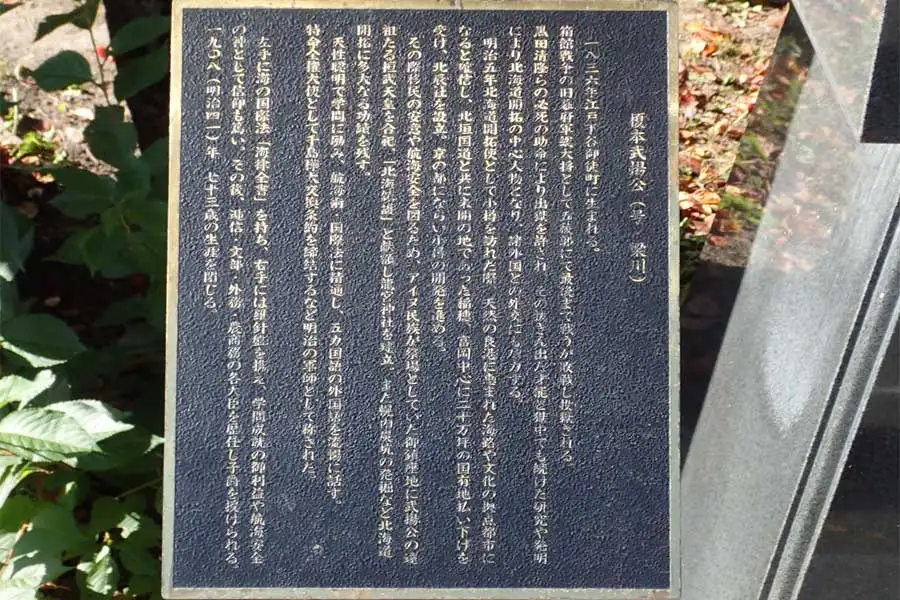 榎本武揚公(号 梁川)
一八三六年江戸下谷御徒町に生まれる。
箱館戦争の旧幕府軍総大将として五稜郭にて最後まで戦うが敗戦し投獄される。
黒田清隆らの必死の助命により出獄を許され、その抜きん出た才能と獄中でも続けた研究や発明
により北海道開拓の中心人物となり、諸外国との外交にも尽力する。
明治五年北海道開拓使として小樽を訪れた際、天然の良港に恵まれた海路や文化の拠点都市に
なると確信し、北垣国道と共に未開の地であった稲穂、富岡中心に二十万坪の国有地払い下げを
受け、北辰社を設立、京の都にならい小樽の開発を進める。
その際移民の安意や航海安全を図るため、アイヌ民族が祭場としていた御鎮座地に武揚公の遠
祖たる桓武天皇を合祀、「北海鎮護」と献額し龍宮神社を建立、また幌内炭鉱の発掘など北海道
開拓に多大なる功績を残す。
天性聡明で学問に励み、航海術・国際法に精通し、五カ国語の外国語を流暢に話す。
特命全権大使として千島樺太交換条約を締結するなど明治の軍師として称された。
左手に海の国際法「海律全書」を持ち、右手には羅針盤を携え、学問成就の御利益や航海安全
の神として信仰も篤い。その後、逓信・文部・外務・農商務の各大臣を歴任し子爵を授けられる。
一九〇八(明治四一)年 七十三歳の生涯を閉じる。